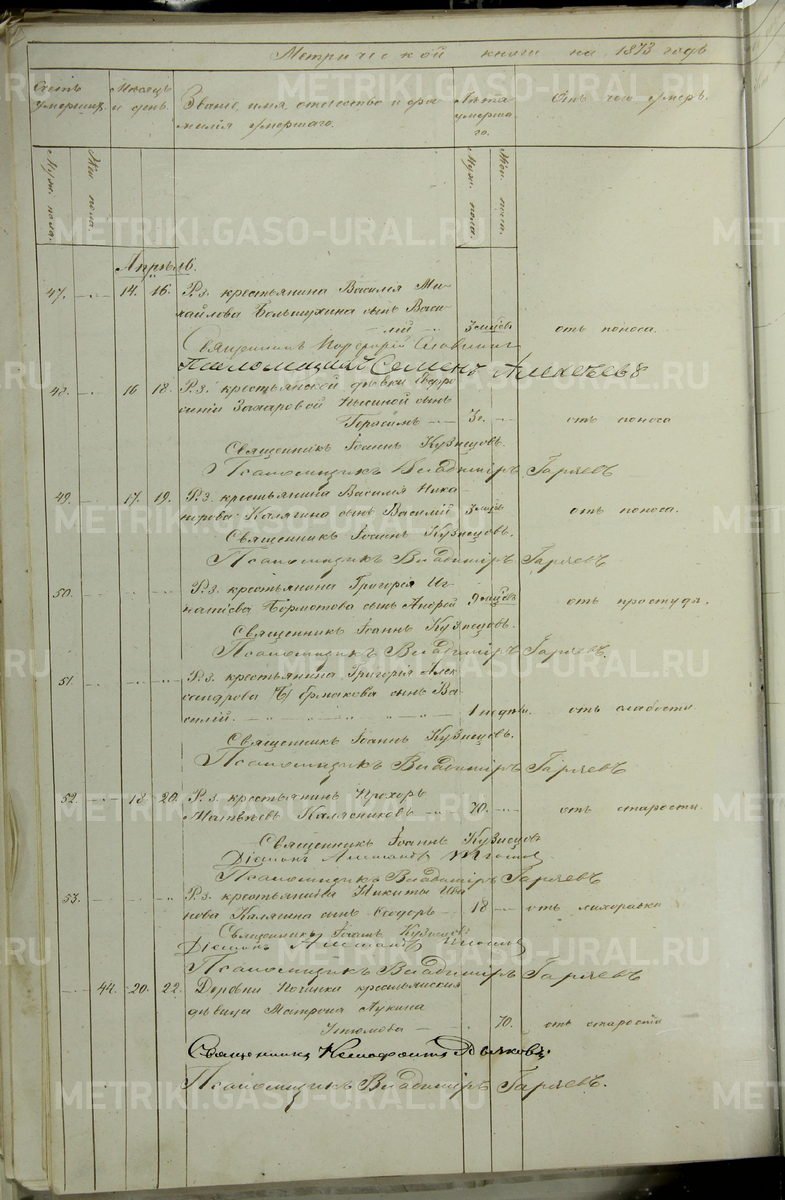 Метрической книги на 1873 годъ
Счетъ умершихъ.
Мѣсяцъ и день.
Званіе, имя, отчество и фа-
милія умершаго.
Лѣта умерша-
го.
Отъ чего умеръ.
Муж. пола.
Жен. пола.
Муж. пола.
Жен. пола.
Апрѣль.
47. 14. 16. Р. з. крестьянина Василія Ми-
хайлова сынъ Васи-
лій 3 мцевъ отъ поноса.
Священникъ Порфирій Славнинъ
Псаломщикъ Семенъ Алексеевъ
48. 16 18. Р. з. крестьянской дѣвки
Захаровой сынъ
Герасимъ 3 отъ поноса
Священникъ Іоаннъ Кузнецовъ.
Псаломщикъ Владиміръ Гаряевъ
49. 17. 19. Р. з. крестьянина Василія Ника-
норова Калягина сынъ Василій 3 мцевъ отъ поноса.
Священникъ Іоаннъ Кузнецовъ.
Псаломщикъ Владиміръ Гаряевъ
50. Р. з. крестьянина Григорія Иг-
натіева Бормотова сынъ Андрей 9 мцевъ отъ простуды.
Священникъ Іоаннъ Кузнецовъ.
Псаломщикъ Владиміръ Гаряевъ.
51. Р. з. крестьянина Григорія Алек-
сандрова Ермакова сынъ Ва-
силій. 1 недѣли. отъ слабости
Священникъ Іоаннъ Кузнецовъ.
Псаломщикъ Владиміръ Гаряевъ
52. 18 20. Р. з. крестьянинъ Прохоръ
Матвѣевъ Калясниковъ 70. отъ старости.
Священникъ Іоаннъ Кузнецовъ
Діаконъ
Псаломщикъ Владиміръ Гаряевъ
53. Р. з. крестьянина Никиты Ива-
нова Калягина сынъ Ѳеодоръ 18 отъ лихорадки
Священникъ Іоаннъ Кузнецовъ
Діаконъ
Псаломщикъ Владиміръ Гаряевъ
44. 20. 22. Деревни Починки крестьянская
дѣвица Матрона Лукина
Утюмова 70. отъ старости
Священникъ Ксенофонтъ
Псаломщикъ Владиміръ Гаряевъ.
METRIKI.GASO-URAL.RU